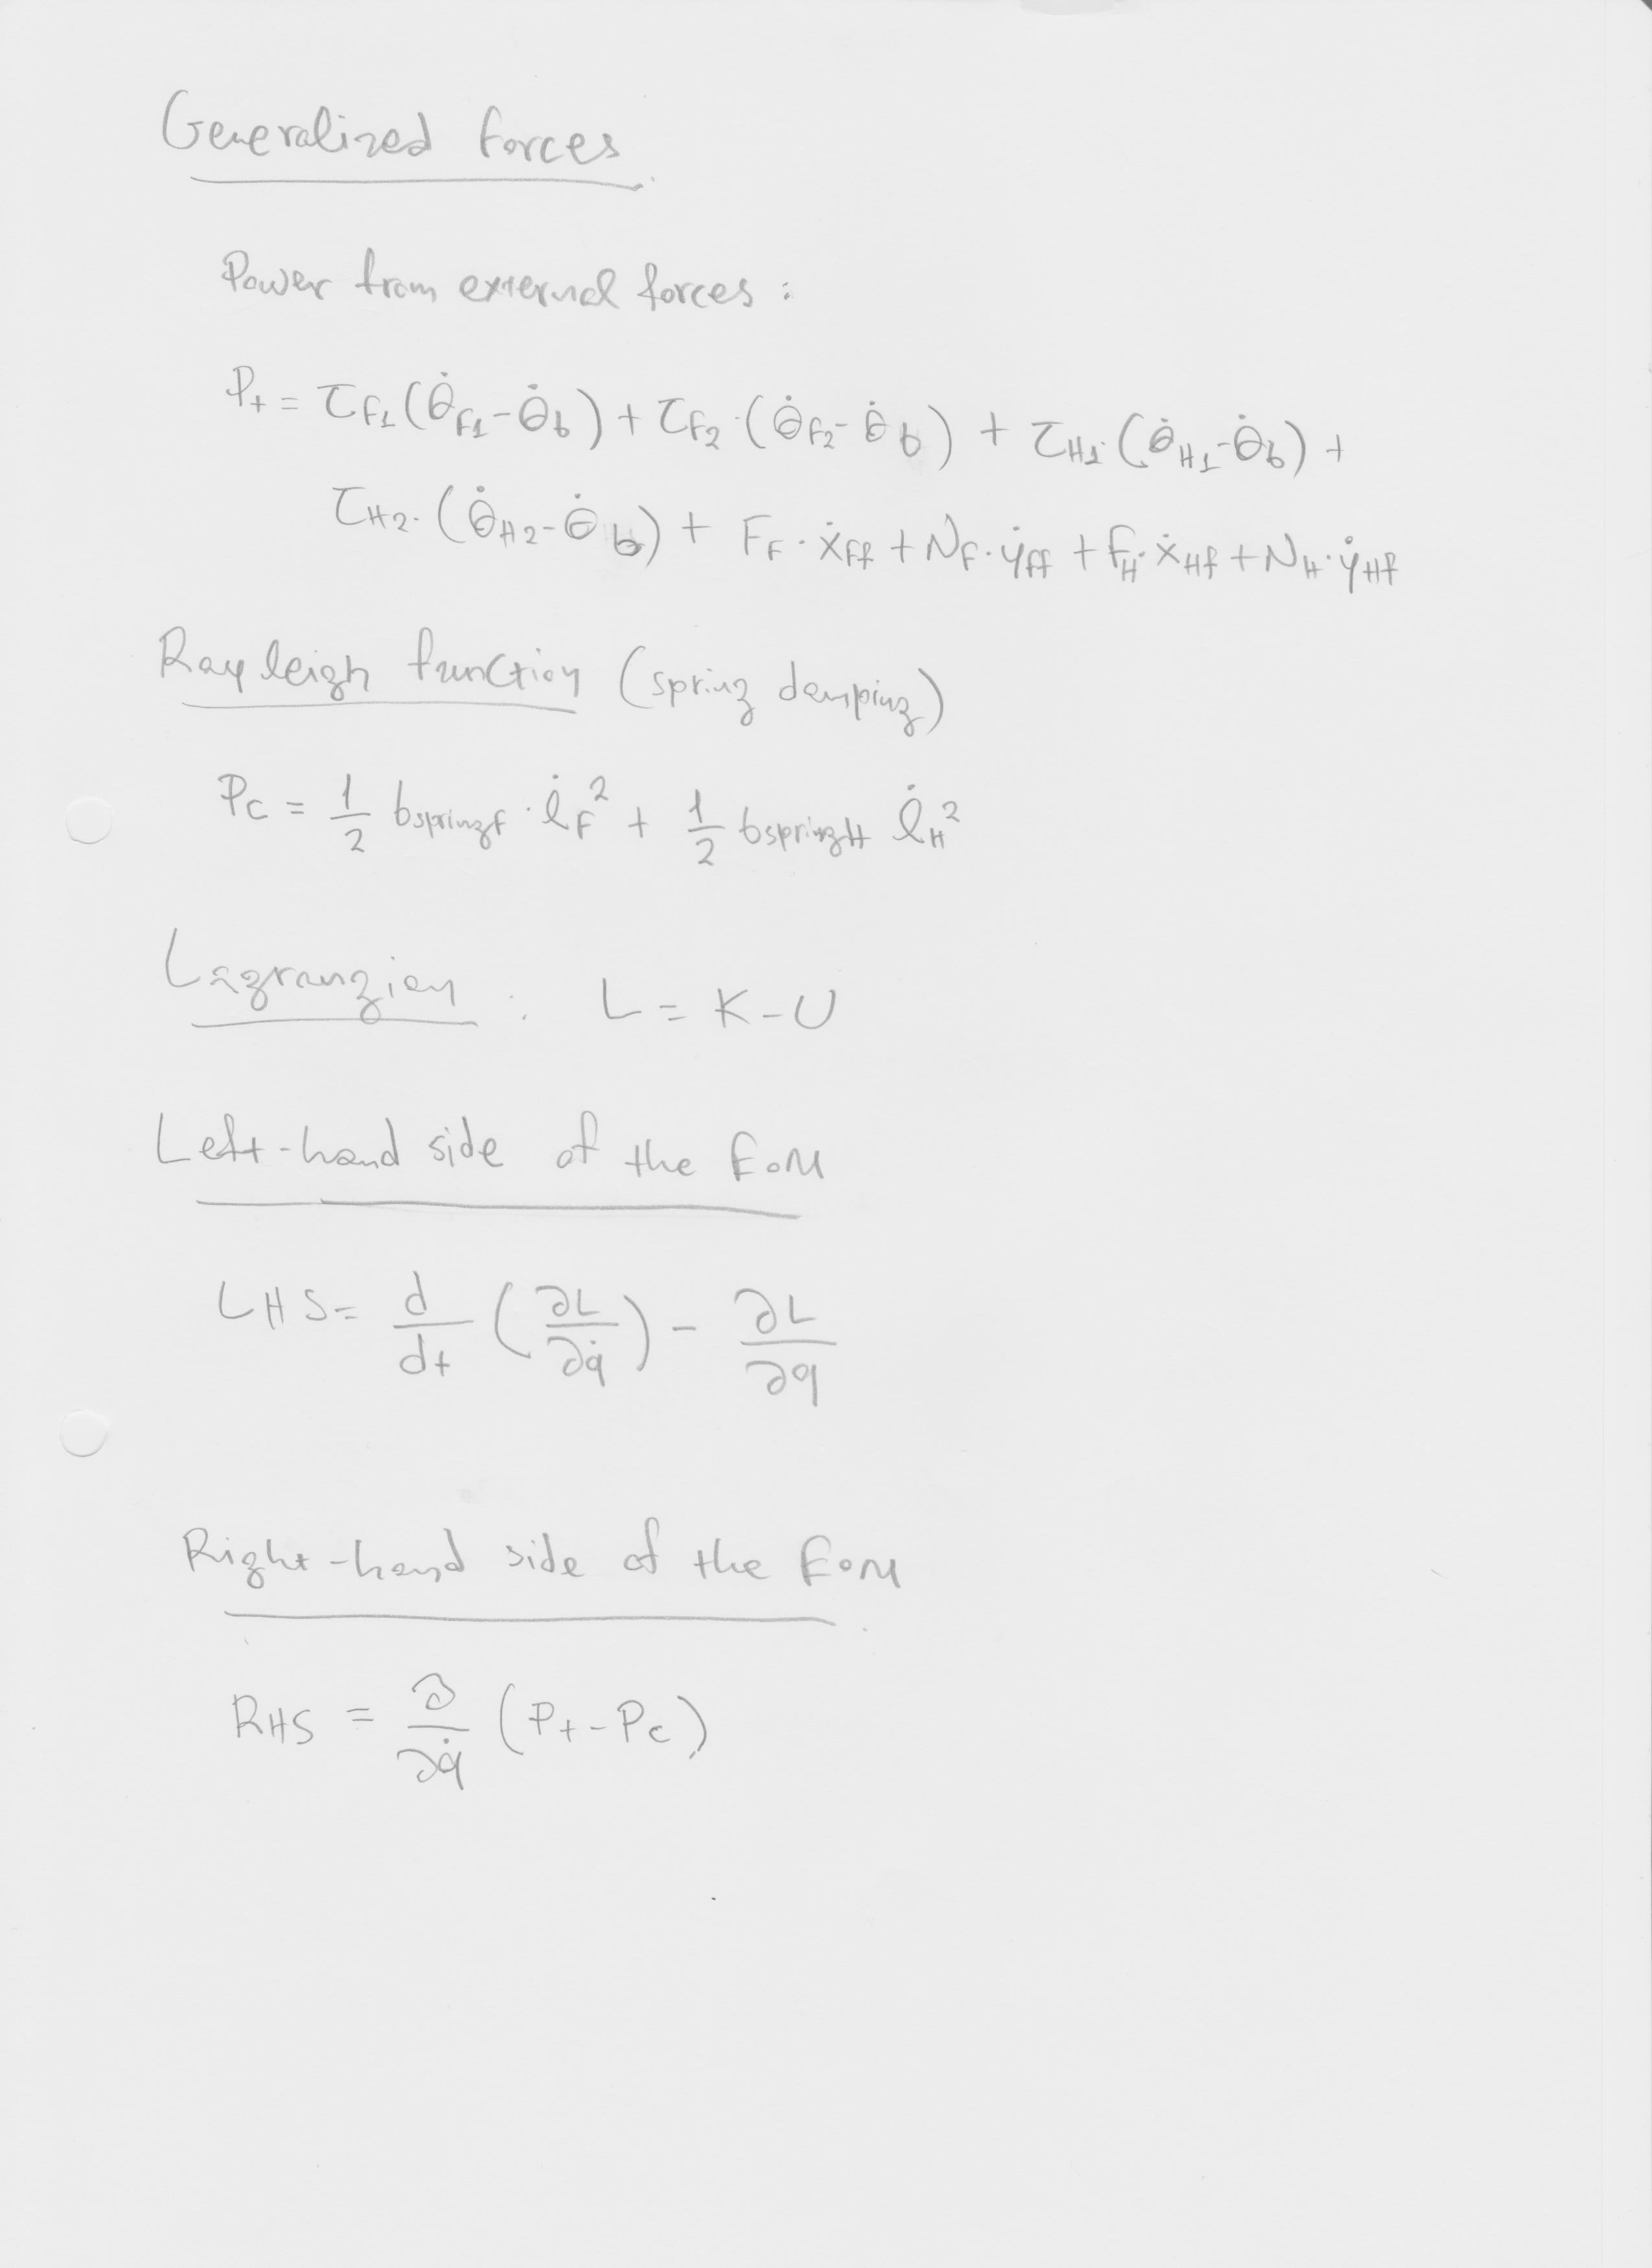 Generalized Forces
Power from external forces:
P_t = τ_F1 (θ̇_F1 - θ̇_b) + τ_F2 · (θ̇_F2 - θ̇_b) + τ_H1 · (θ̇_H1 - θ̇_b) +
τ_H2 · (θ̇_H2 - θ̇_b) + F_F · ẋ_Ff + N_F · ẏ_Ff + F_H · ẋ_Hf + N_H · ẏ_Hf
Rayleigh function (spring damping)
P_c = 1/2 b_springF · l̇_F² + 1/2 b_springH l̇_H²
Lagrangian : L = K - U
Left-hand side of the EoM
LHS = d/dt (∂L/∂q̇) - ∂L/∂q
Right-hand side of the EoM
RHS = ∂/∂q̇ (P_t - P_c)